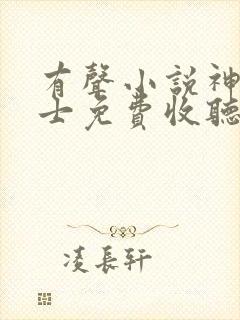 有聲小説神
士免費收聽
凌長軒